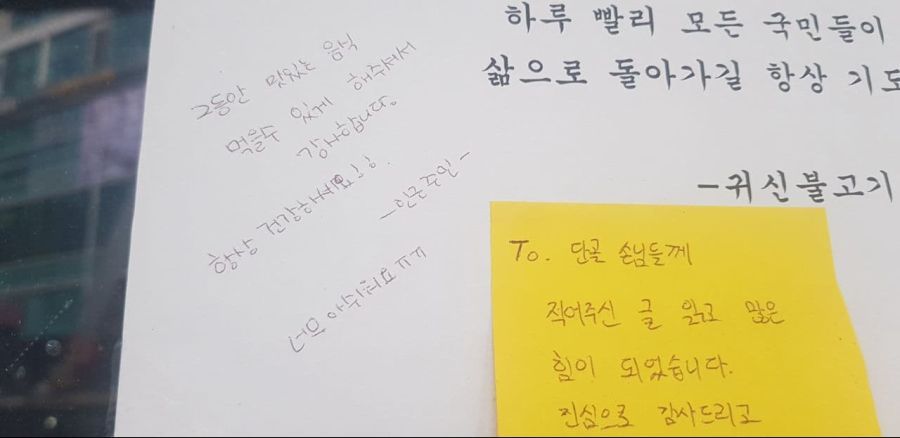 하루 빨리 모든 국민들이
삶으로 돌아가길 항상 기도
-귀신불고기
그동안 맛있는 음식
먹을수 있게 해주셔서
감사합니다.
항상 건강하세요!!
-인근주민-
너무 아쉬워요 ㅠㅠ
To. 단골 손님들께
적어주신 글 읽고 많은
힘이 되었습니다.
진심으로 감사드리고